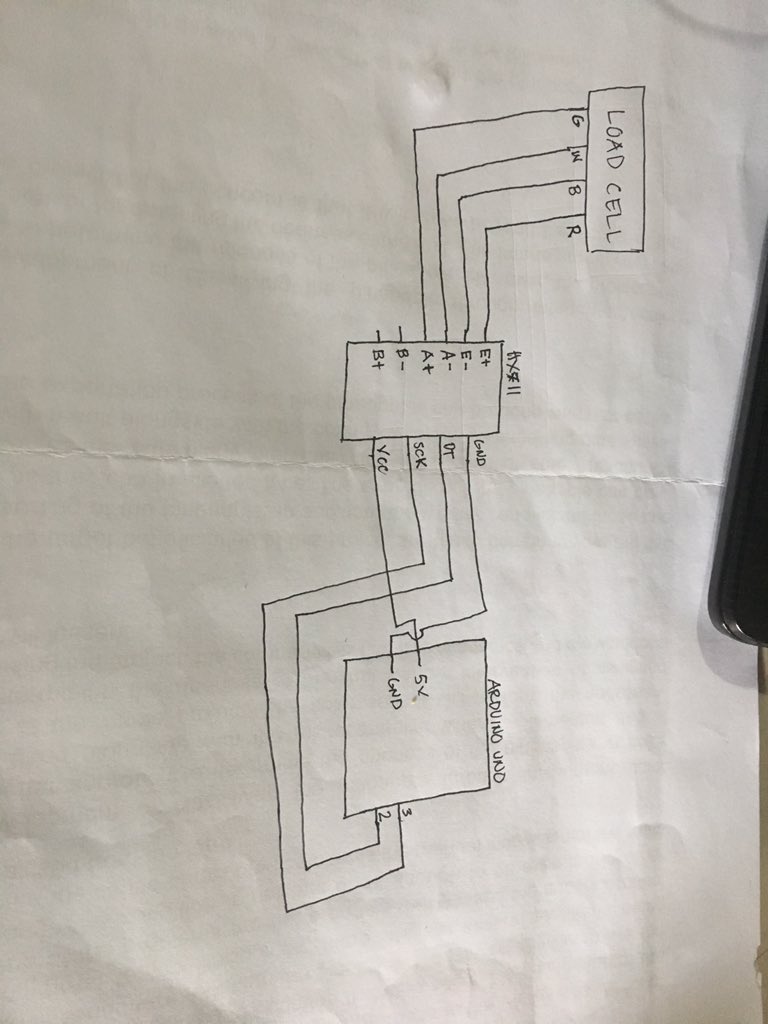 LOAD CELL
G
W
B
R
HX711
E+
E-
A-
A+
B-
B+
GND
DT
SCK
VCC
ARDUINO UNO
5V
GND
3
2